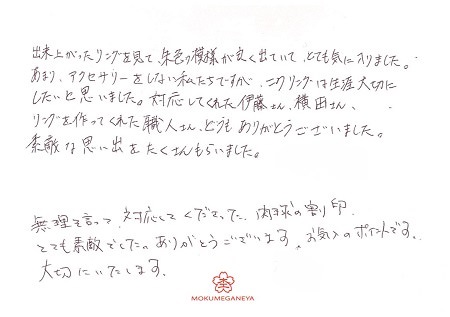 出来上がったリングを見て、朱色の模様が良く出ていて、とても気に入りました。
あまり、アクセサリーをしない私たちですが、このリングは生涯大切に
したいと思いました。対応してくれた伊藤さん、横田さん、
リングを作ってくれた職人さん、どうもありがとうございました。
素敵な思い出をたくさんもらいました。
無理を言って、対応してくださった、肉球の割り印、
とても素敵でした。ありがとうございます。お気入のポイントです。
大切にいたします。
MOKUMEGANEYA